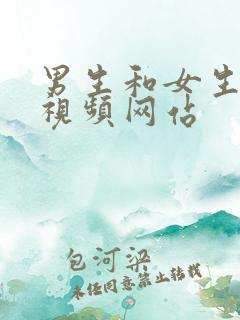 男生和女生
视频网佔
包河梁
未经同意禁止转载